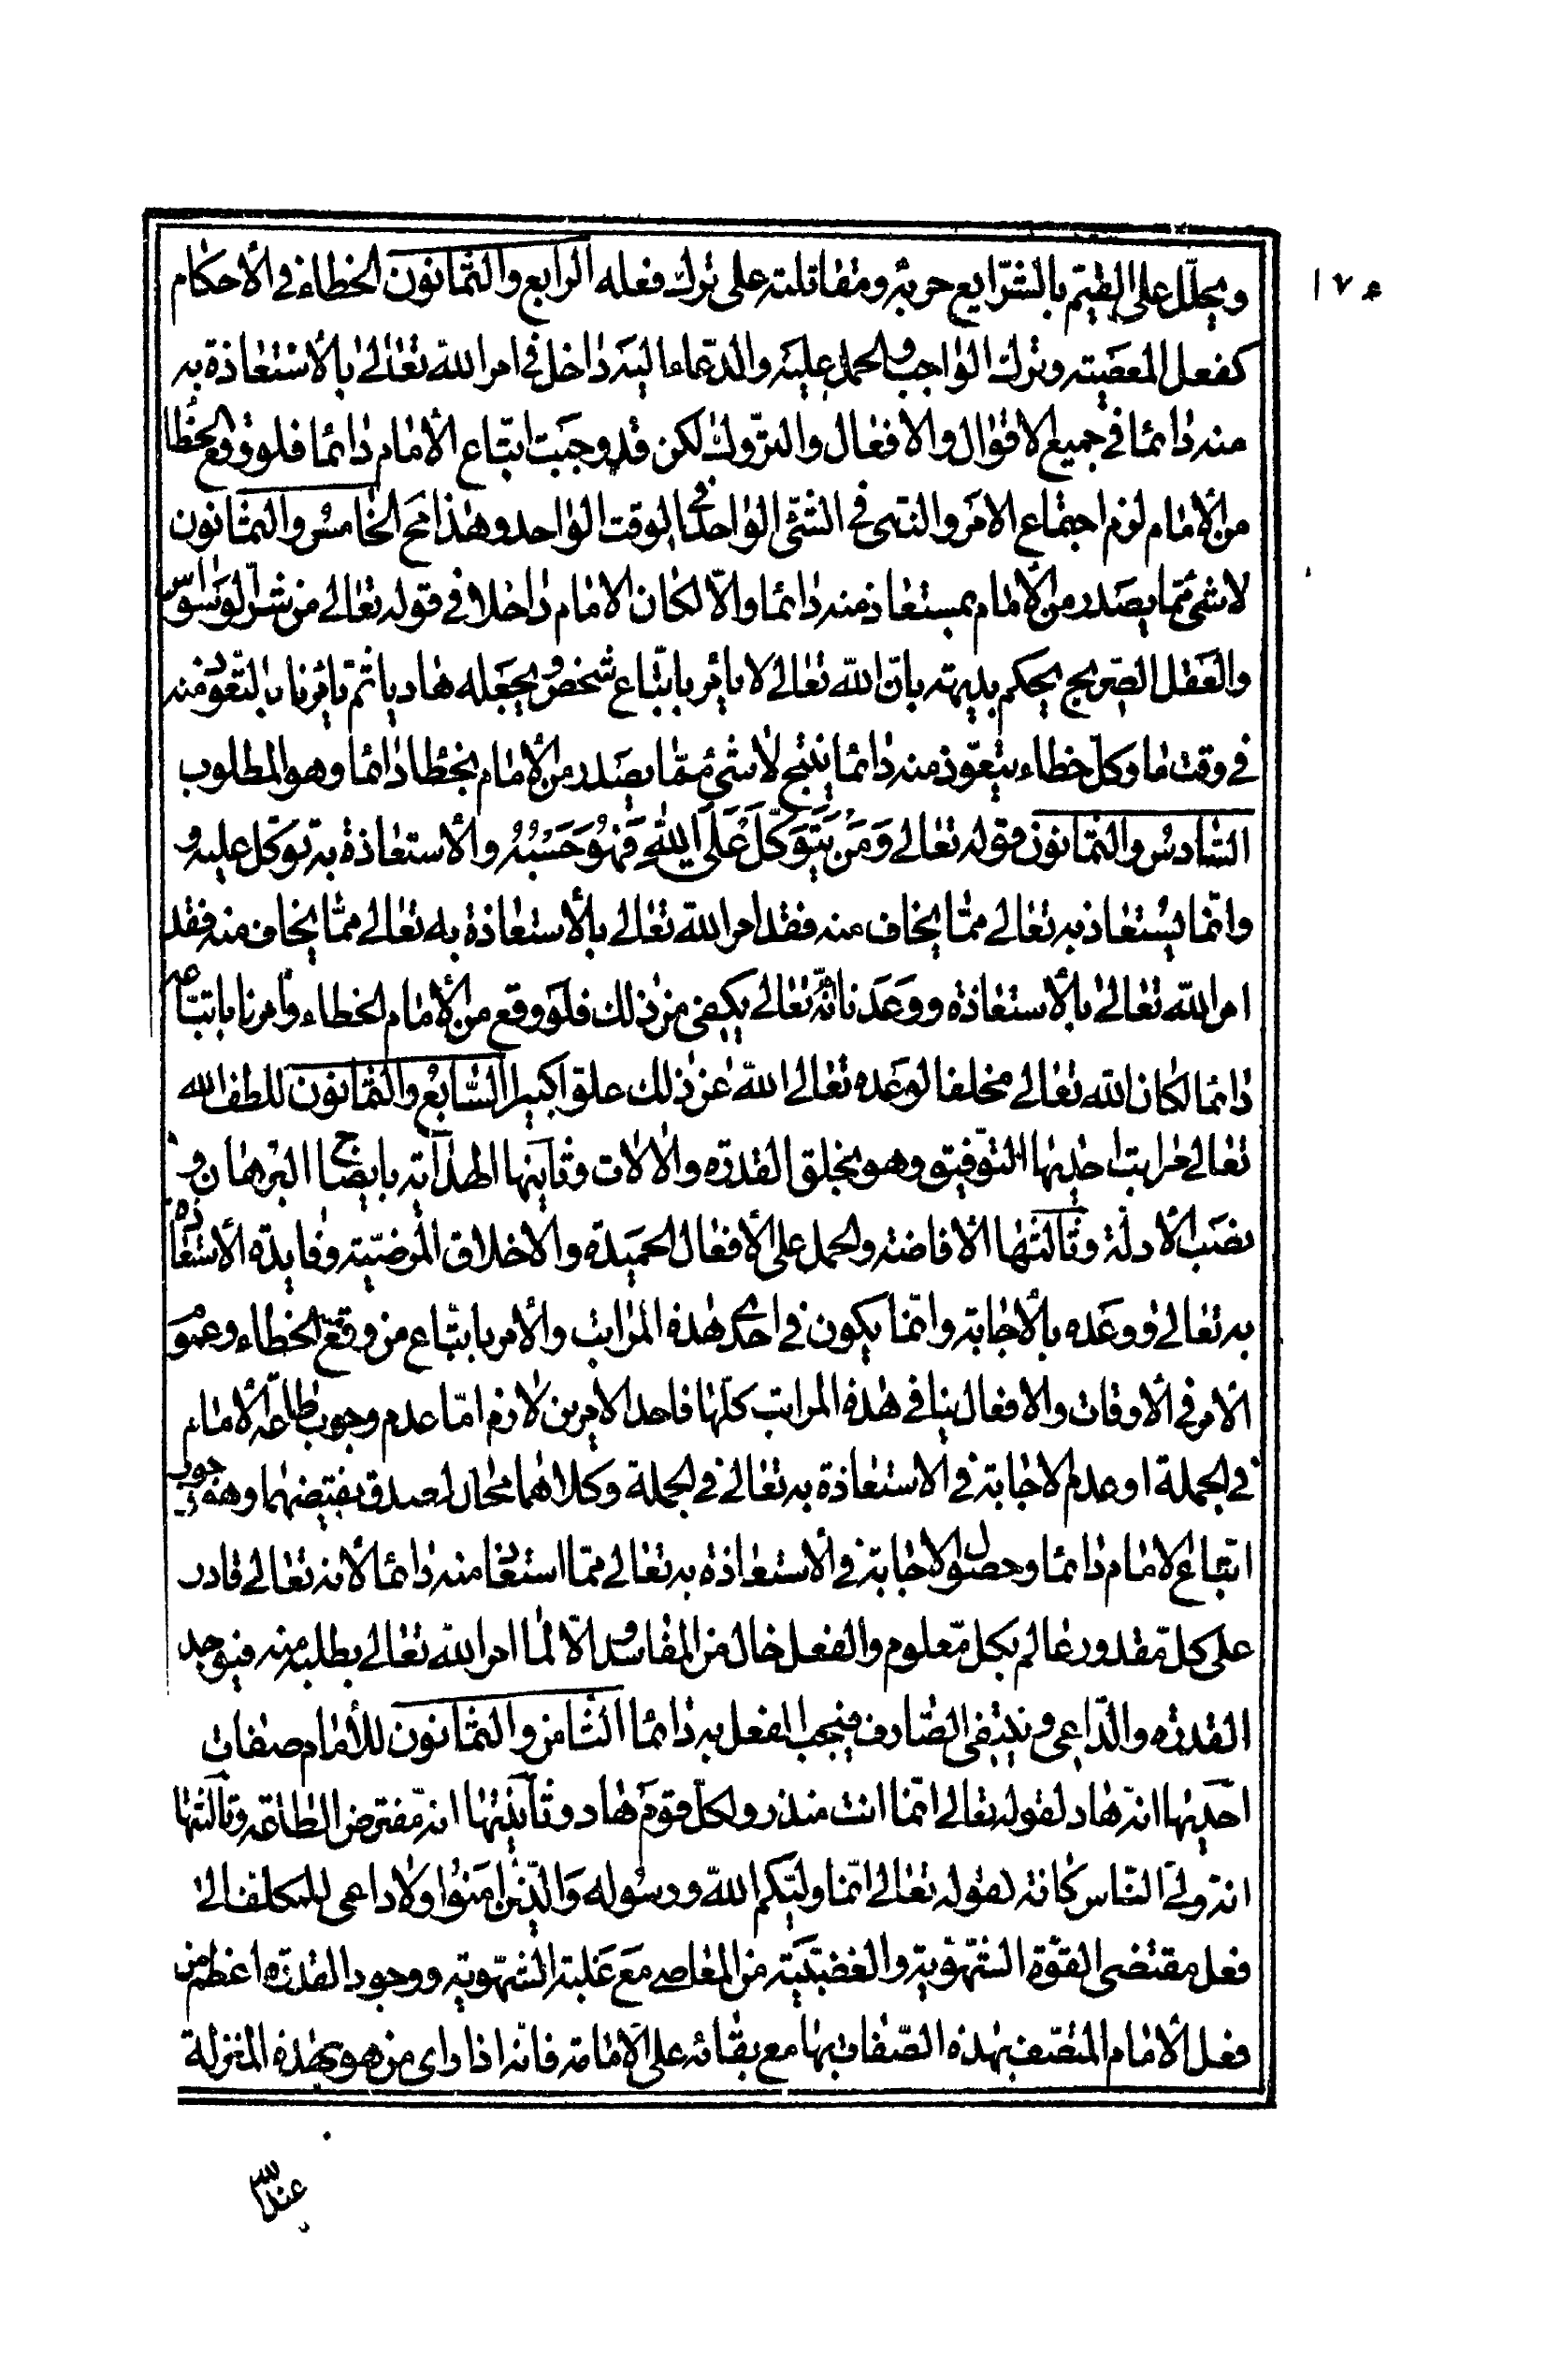 ١٧٤
ويحلل على القيم بالشرايع حربه ومقاتلته على ترك فعله الرابع والثمانون الخطاء في الأحكام
كفعل المعصية وترك الواجب والحمل عليه والدعاء اليه داخل في امر الله تعالى بالأستعاذة به
منه دائما في جميع الاقوال والافعال والتروك لكن قد وجبت اتباع الأمام دائما فلو وقع الخطا
من الأمام لزم اجتماع الامر والنهى في الشئ الواحد في الوقت الواحد وهذا مح الخامس والثمانون
لا شئ مما يصدر من الأمام بمستعاذ منه دائما والّا لكان الامام داخلا في قوله تعالى من شر الوسواس
والعقل الصريح يحكم بديهته بانّ الله تعالى لا يأمر باتّباع شخص ويجعله هاديا ثم يأمرنا بالتعوذ منه
في وقت ما وكل خطاء يتعوّذ منه دائما ينتج لا شئ ممّا يصدر من الأمام بخطا دائما وهو المطلوب
السّادس والثمانون قوله تعالى وَمَنْ يَتَوَكَّلْ عَلَى اللهِ فَهُوَ حَسْبُهُ والأستعاذة به توكّل عليه و
وانّما يستعاذ به تعالى ممّا يخاف منه فقد امر الله تعالى بالأستعاذة به تعالى ممّا يخاف منه فقد
امر الله تعالى بالأستعاذة ووعدنا انّه تعالى يكفى من ذلك فلو وقع من الأمام الخطاء وامرنا باتباعه
دائما لكان الله تعالى مخلفا لوعده تعالى الله عن ذلك علوّا كبيرا السّابع والثمانون للطف الله
تعالى مراتب احديها التوفيق وهو بخلق القدرة والالات وثانيها الهداية بايضاح البرهان و
نصب الأدلة وثالثها الأفاضة والحمل على الأفعال الحميدة والاخلاق المرضيّة وفايدة الأستعاذة
به تعالى ووعده بالأجابة وانّما يكون في احدى هذه المراتب والأمر باتّباع من وقع منه الخطاء وعموم
الأمر في الأوقات والافعال ينافي هذه المراتب كلّها فاحد الامرين لازم امّا عدم وجوب طاعة الأمام
في الجملة او عدم الاجابة في الاستعاذة به تعالى في الجملة وكلاهما محال لصدق نقيضهما وهو وجوب
اتباع الامام دائما وحصول الاجابة في الأستعاذة به تعالى ممّا استعاذ منه دائما لأنه تعالى قادر
على كلّ مقدور عالم بكل معلوم والفعل خال من المفاسد والّا لما امر الله تعالى بطلبه منه فيوجد
القدرة والدّاعى وينتفى الصّارف فيجب الفعل به دائما الثّامن والثمانون للأمام صفات
احديها انّه هاد لقوله تعالى انّما انت منذر ولكلّ قوم هاد وثانيتها انه مفترض الطاعة وثالثتها
انه ولى النّاس كافة لقوله تعالى انّما وليّكم الله ورسوله وَالّذين امنوا ولا داعى للمكلف الى
فعل مقتضى القوّة الشّهويّة والغضبيّة من المعاصى مع غلبة الشّهوية ووجود القدرة اعظم من
فعل الأمام المتّصف بهذه الصّفات بها مع بقائه على الامامة فانّه اذا راى من هو بهذه المنزلة
عند الله